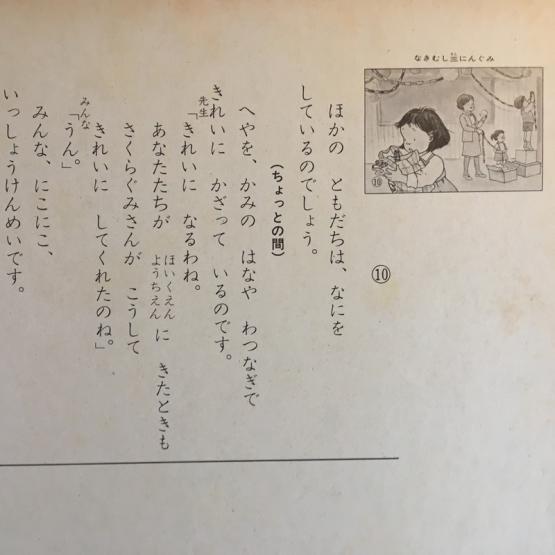 なきむし三にんぐみ
⑩
⑩
ほかの ともだちは、なにを
しているのでしょう。
(ちょっとの間)
へやを、かみの はなや わつなぎで
きれいに かざって いるのです。
先生「きれいに なるわね。
あなたたちが ほいくえん ようちえん に きたときも
さくらぐみさんが こうして
きれいに してくれたのね。」
みんな「うん。」
みんな、にこにこ、
いっしょうけんめいです。